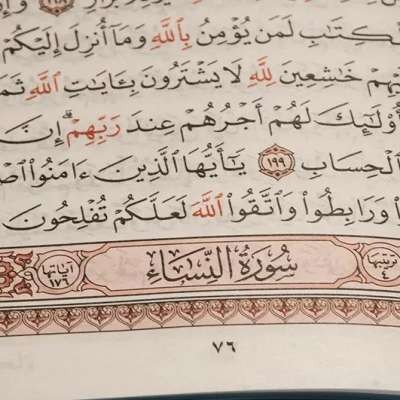 لْكِتَٰبِ لَمَن يُؤْمِنُ بِٱللَّهِ وَمَآ أُنزِلَ إِلَيْكُمْ
خَٰشِعِينَ لِلَّهِ لَا يَشْتَرُونَ بِـَٔايَٰتِ ٱللَّهِ
أُو۟لَٰٓئِكَ لَهُمْ أَجْرُهُمْ عِندَ رَبِّهِمْ ۗ إِنَّ
ٱلْحِسَابِ ١٩٩ يَٰٓأَيُّهَا ٱلَّذِينَ ءَامَنُوا۟
وَرَابِطُوا۟ وَٱتَّقُوا۟ ٱللَّهَ لَعَلَّكُمْ تُفْلِحُونَ
ترتيبها ٤ سُورَةُ ٱلنِّسَاءِ آياتها ١٧٦
٧٦